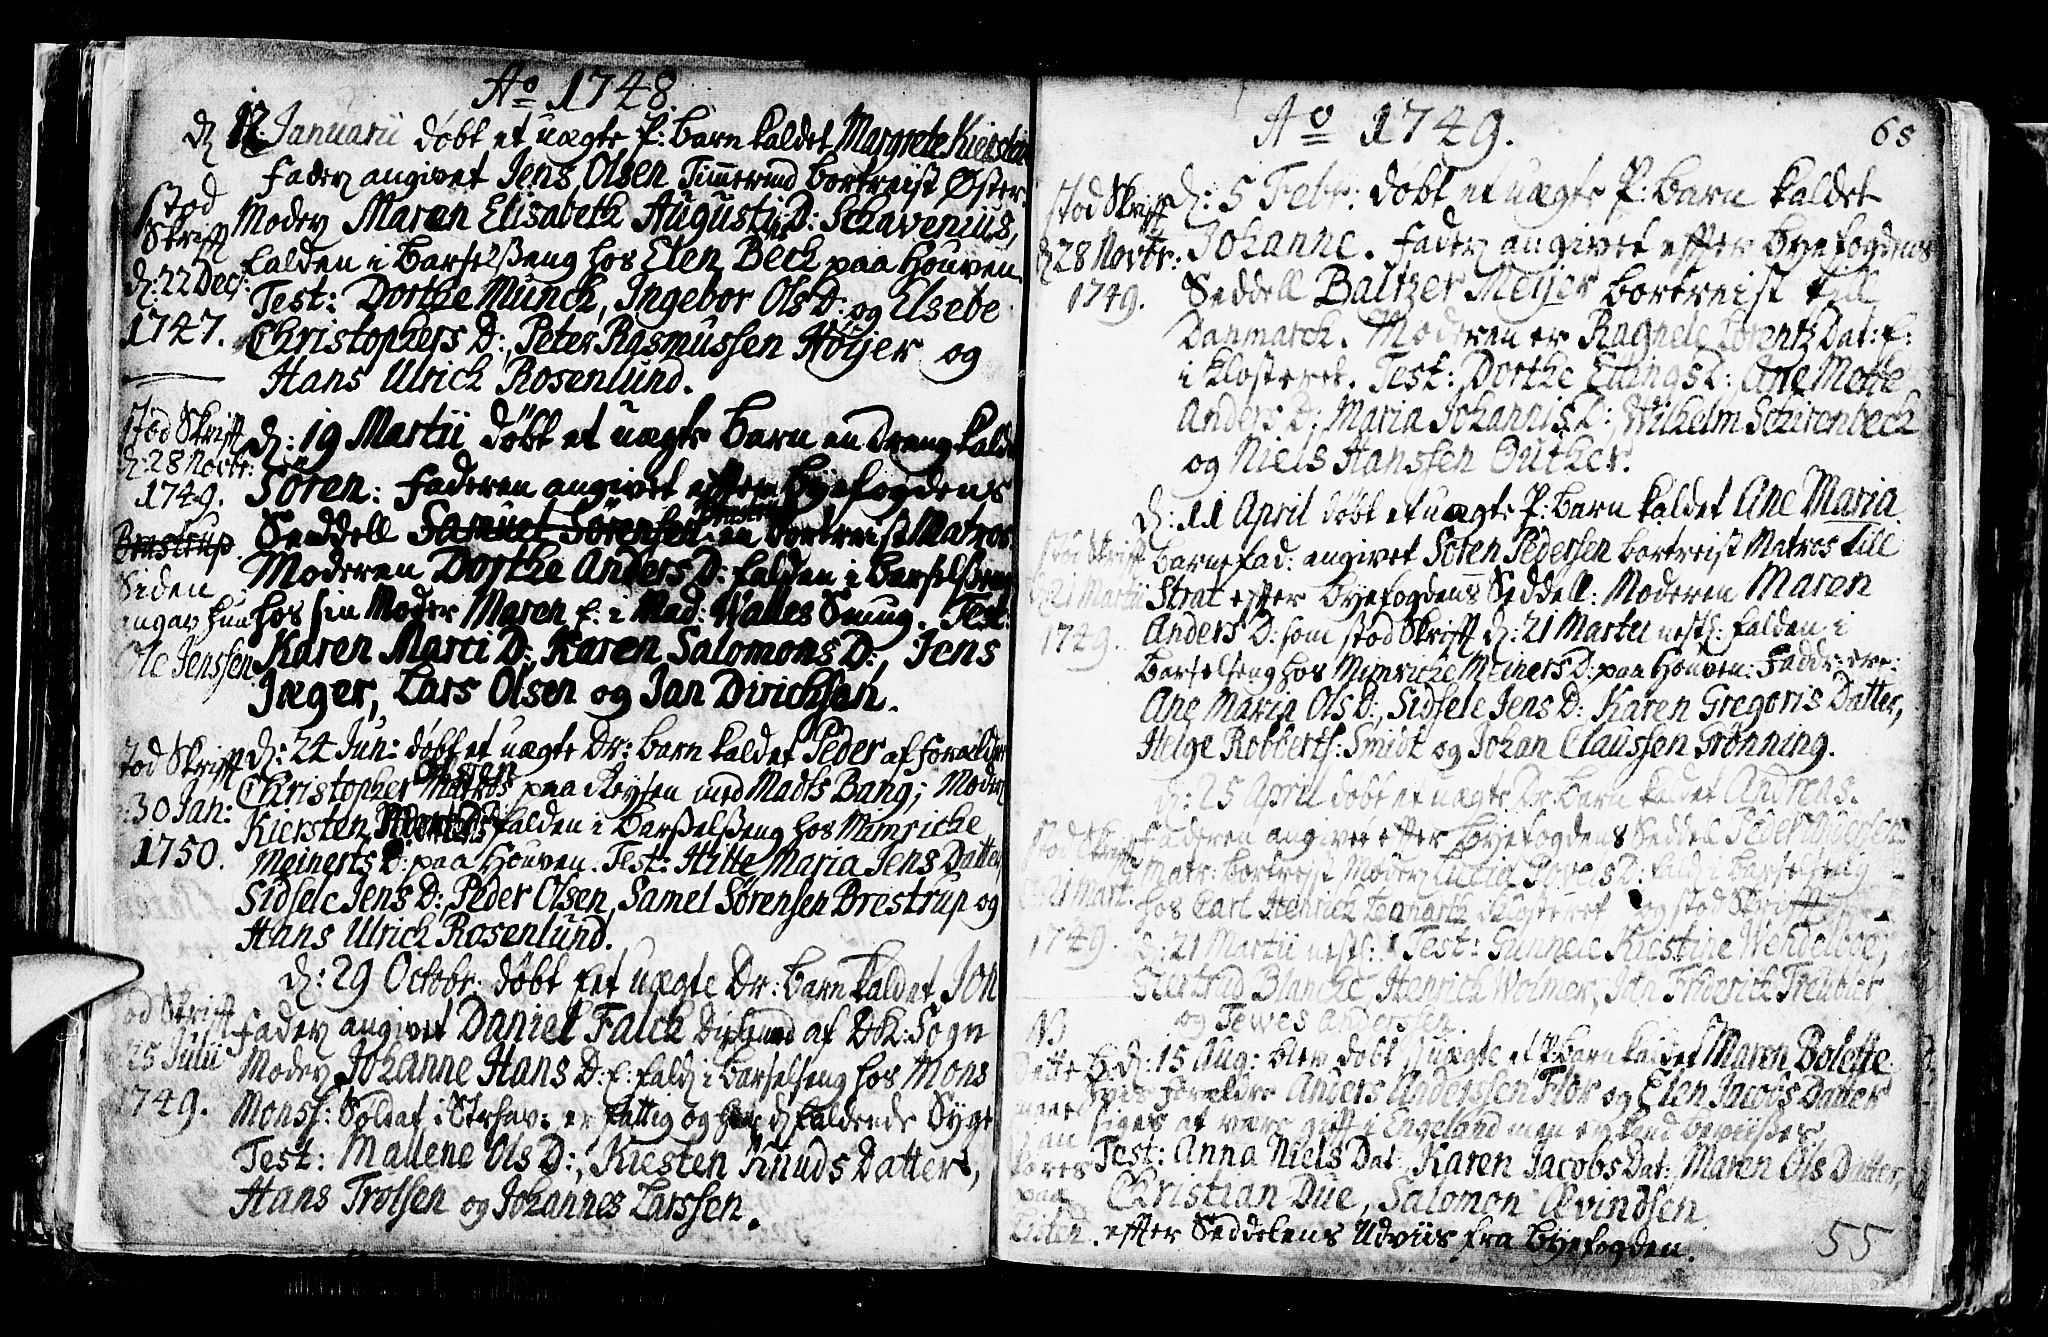 Ao 1748.
d 12. Januarii döbt et uægte P: barn kaldet Margrete Kierstin
Fader angivet Jens Olsen Timmermd bortreist Øster.
Moder Maren Elisabeth Augusti D: Schavenius,
falden i Barselßeng hos Elen Beck paa Houven.
Test: Dorthe Munck, Ingebor Ols D: og Elsebe
Christophers D:, Peter Rasmussen Höyer og
Hans Ulrich Rosenlund.
stod
Skrifft
d: 22 Decr:
1747.
d: 19 Martii döbt et uægte Barn en Dreng kaldet
Sören: Faderen angivet effter Byefogdens
Seddell Samuel Sörensen Brustrup en bortreist Matros
Moderen Dorthe Anders D: falden i Barselßeng
hos sin Moder Maren E: i Mad: Walles Smug. Test:
Karen Marci D:, Karen Salomons D:, Jens
Jæger, Lars Olsen og Jan Dirichsen.
stod Skrifft
d: 28 Novbr:
1749.
Brustrup.
Siden
angav hun
Ole Jenssen.
d: 24 Jun: döbt et uægte Dr: barn kaldet Peder af forældre
Christopher Olsen Matros paa Reysen med Madts Bang; Moder
Kiersten falden i Barßelßeng hos Mimricke
Meinerts D: paa Houven. Test: Hitte Maria Jens Datter
Sidsele Jens D:, Peder Olsen, Samel Sørensen Brestrup og
Hans Ulrich Rosenlund.
stod Skrifft
30 Jan:
1750.
d: 29 Octobr: döbt et uægte Dr: barn kaldet Jon
Fader angivet Daniel Falck af Dk: Sogn
Moder Johanne Hans D: E: fald i barselseng hos Mons
Monss: Soldat i Strhav: er fattig og d faldende Syge
Test: Mallene Ols D:, Kiesten Knuds Datter,
Hans Trolsen og Johannes Larssen.
stod Skrifft
25 Julii
1749.
Ao 1749.
68
d: 5 Febr: döbt et uægte P: barn kaldet
Johanne. Fader angivet effter Byefogdens
Seddell Baltzer Meijer bortreist till
Danmarck. Moderen er Ragnele Lorentz Dat: E:
i Klosteret. Test: Dorthe Ellings D: Ane Mette
Anders D: Maria Johannis D:, Wilhelm Schirenbeck
og Niels Hanssen Büther.
stod Skrifft
d: 28 Novbr:
1749.
d: 11 April döbt et uægte P: barn kaldet Ane Maria.
barnefad: angivet Sören Pedersen bortreist Matros till
Strat effter Byefogdens Seddell: Moderen Maren
Anders D: som stod Skrifft d: 21 Martii nestl: falden i
Barselseng hos Mimricke Meiners D: paa Houven: Faddr: ere:
Ane Maria Ols D:, Sidsele Jens D: Karen Gregoris Datter,
Helge Robberts: Smidt og Johan Claussen Grönning.
stod Skrifft
d: 21 Martii
1749.
d: 25 April döbt et uægte Dr. barn kaldet Andreas.
Faderen angivet effter Byefogdens Seddell Peder
Matr: bortreist Moder Lucia Povels D: fald i Barselseng
hos Carl Henrich Lenmarck i Klosteret og stod Skrifft
d: 21 Martii nestl: Test: Gunnele Kiestine Wendelboe,
Giertrud Blancke, Henrich Wolmer, Jan Friderich Treubler
og Tewes Anderssen.
stod Skrifft
d: 21 Mart:
1749.
d: 15 Aug: blev döbt uægte et P: barn kaldet Maren Bolette.
forældre Anders Anderssen Flor og Elen Jacobs Datter
siges at være gift i Engeland men ey kand bevises,
Test: Anna Niels Dat: Karen Jacobs Dat: Maren Ols Datter,
Christian Due, Salomon Evindsen
effter Seddelens Udviis fra Byefogden.
55